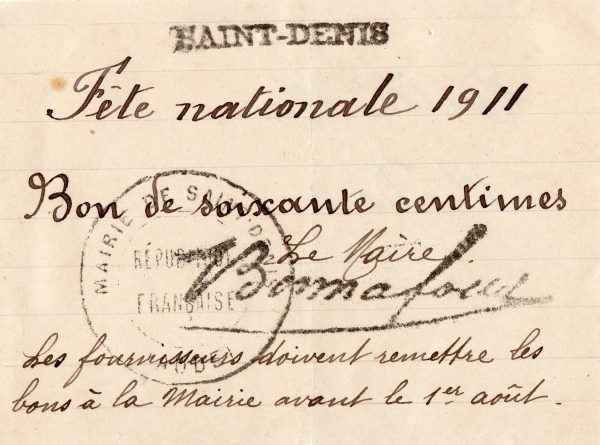 SAINT-DENIS
Fête nationale 1911
Bon de soixante centimes
Le Maire
Bonnafous
MAIRIE DE SAINT-DENIS
RÉPUBLIQUE
FRANÇAISE
AUDE
Les fournisseurs doivent remettre les
bons à la Mairie avant le 1er août.